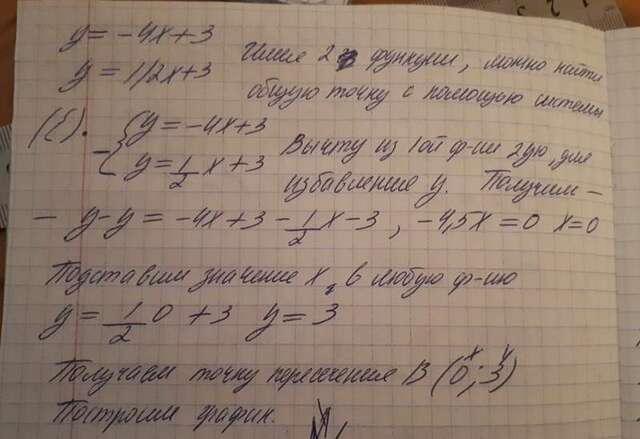 y = -4x+3
y = 1/2x+3
Имея 2 функции, можно найти
общую точку с помощою системы
{y = -4x+3
{y = 1/2 x + 3
Вычту из 1ой ф-ии 2ую, для
избавления y. Получим -
- y-y = -4x+3 - 1/2x - 3, -4,5x = 0 x=0
Подставим значение x, в любую ф-ию
y = 1/2 0 + 3 y = 3
Получаем точку пересечения B (0; 3)
x y
Построим график.